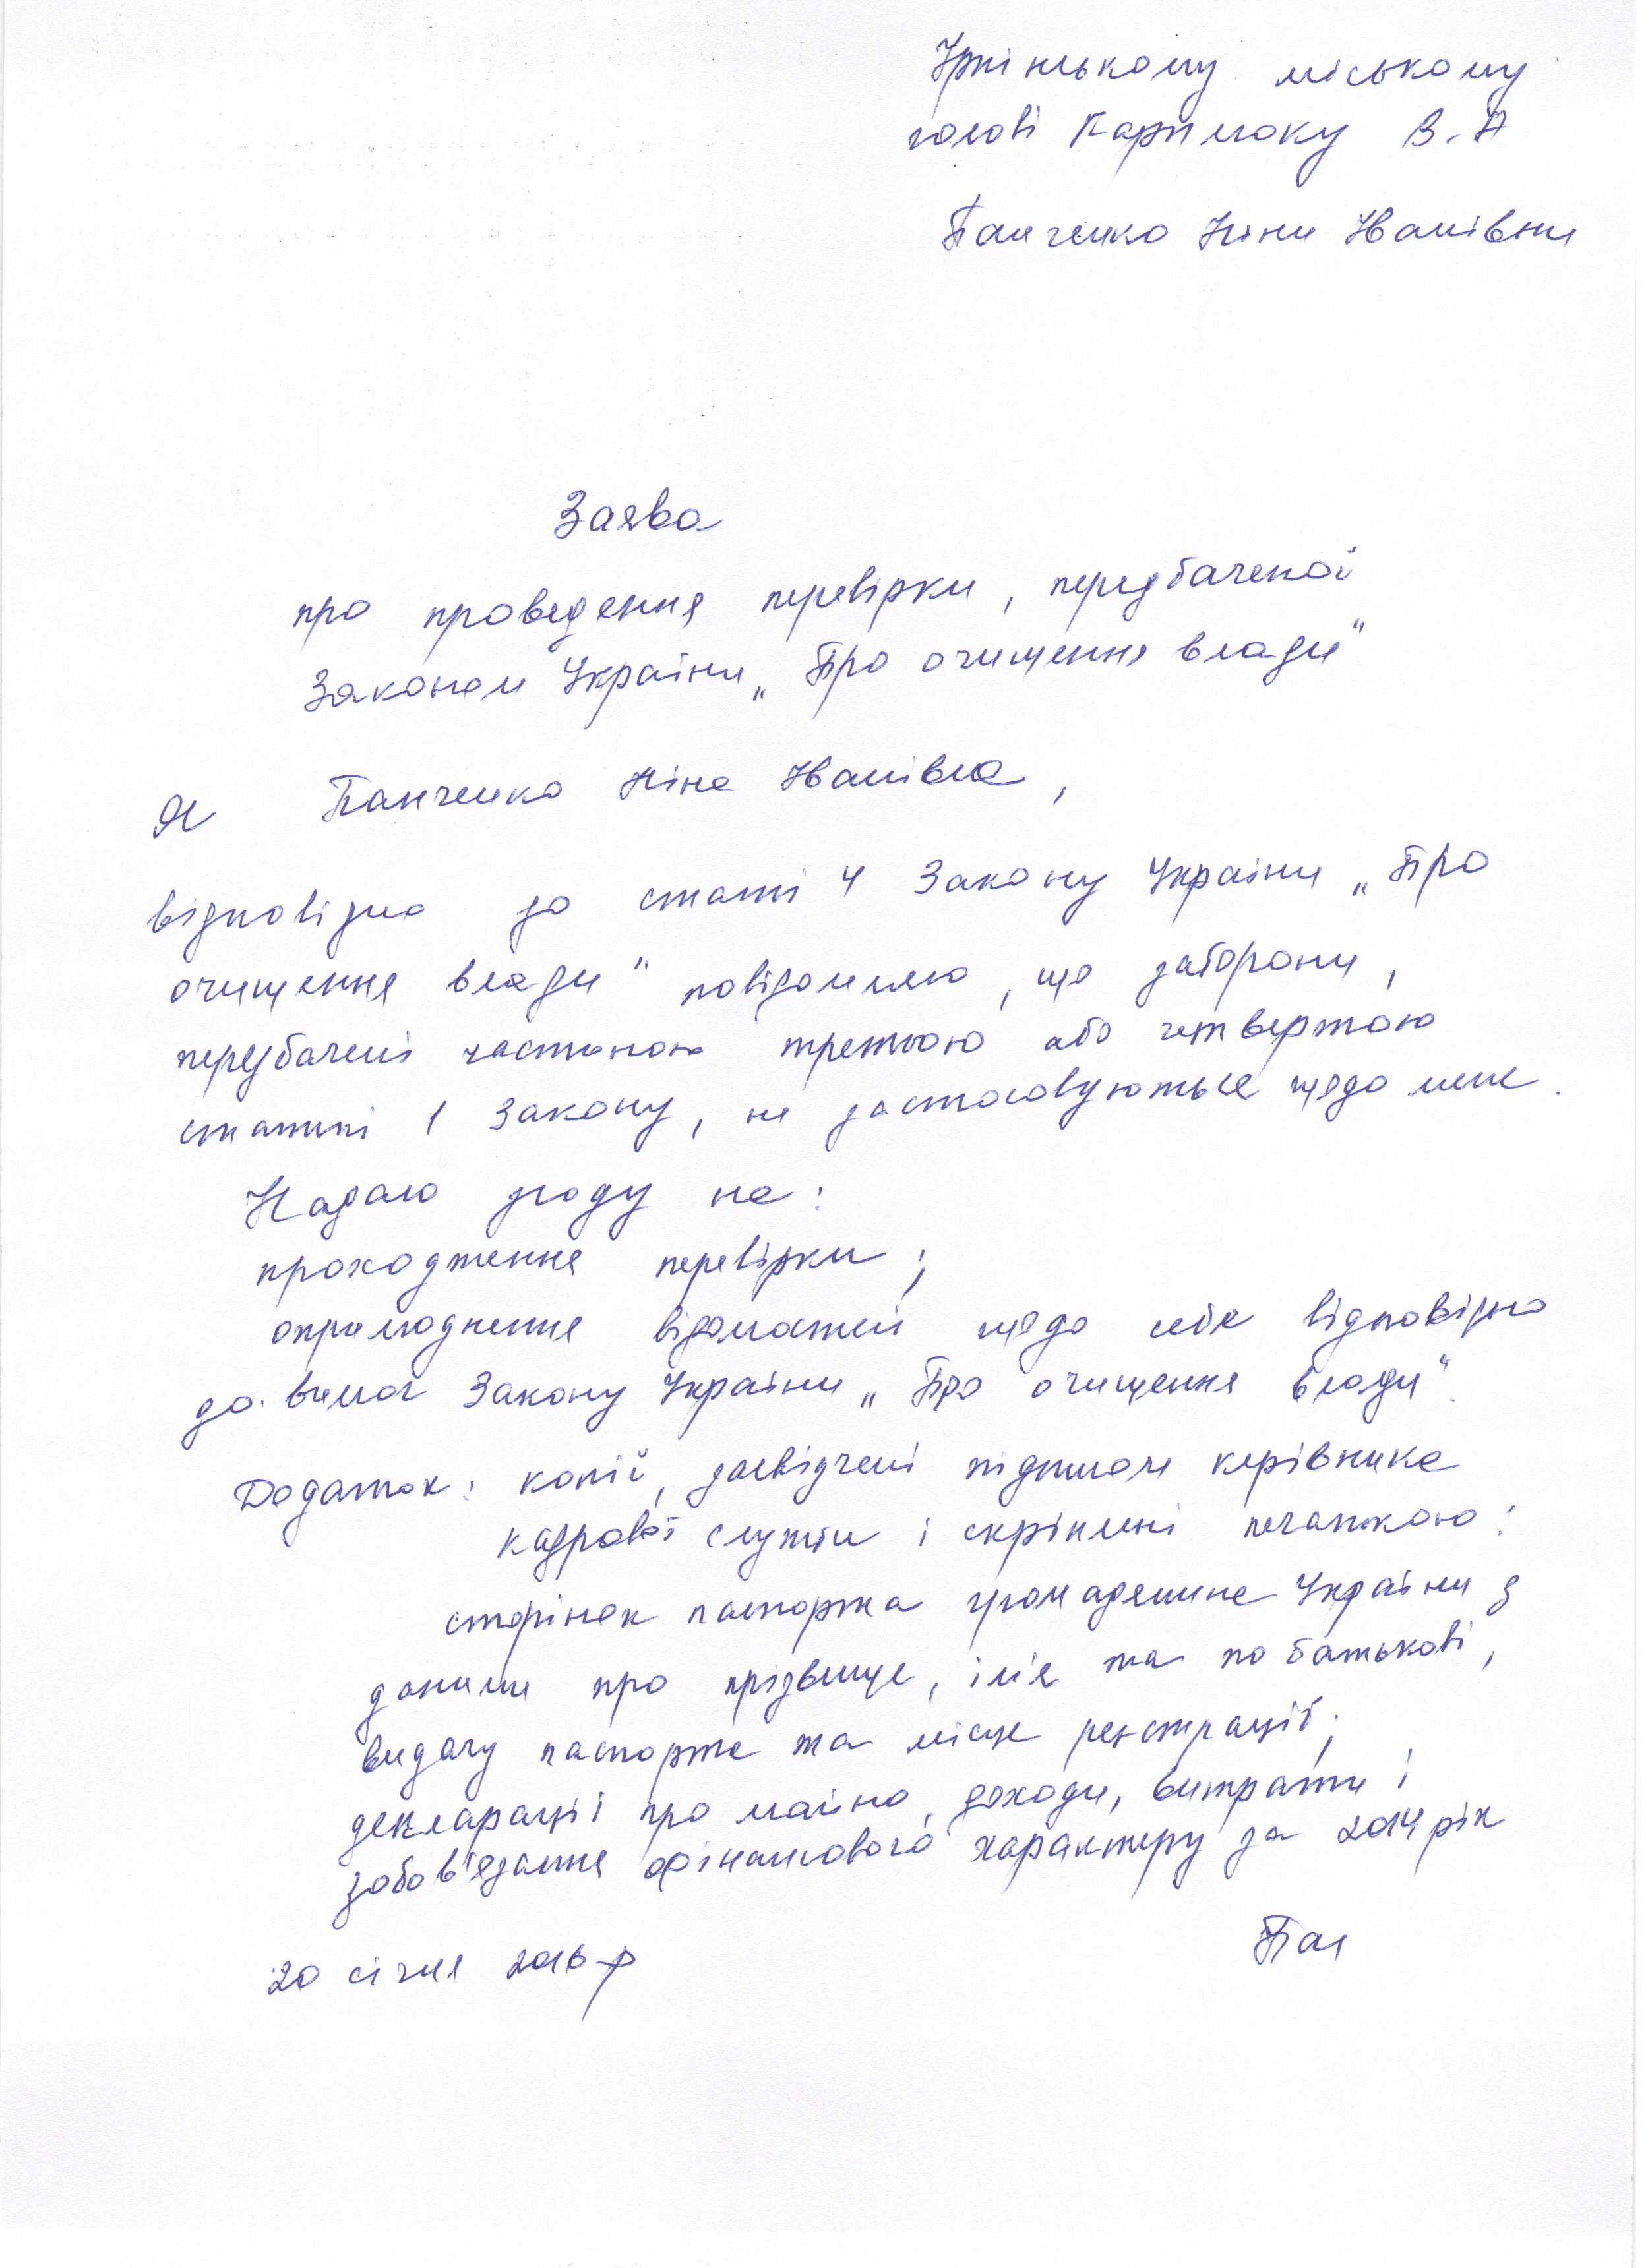 Ірпінському міському
голові Карплюку В.А
Панченко Ніни Іванівни
Заява
про проведення перевірки, передбаченої
Законом України „Про очищення влади"
Я Панченко Ніна Іванівна,
відповідно до статі 4 Закону України „Про
очищення влади" повідомляю, що заборони,
передбачені частиною третьою або четвертою
статті 1 Закону, не застосовуються щодо мене.
Надаю згоду на:
проходження перевірки;
оприлюднення відомостей щодо себе відповідно
до вимог Закону України „Про очищення влади".
Додаток: копії, засвідчені підписом керівника
кадрової служби і скріплені печаткою:
сторінок паспорта громадянина України з
даними про прізвище, ім'я та по батькові,
видачу паспорта та місце реєстрації;
декларації про майно, доходи, витрати і
зобов'язання фінансового характеру за 2014 рік
20 січня 2016 р Пан